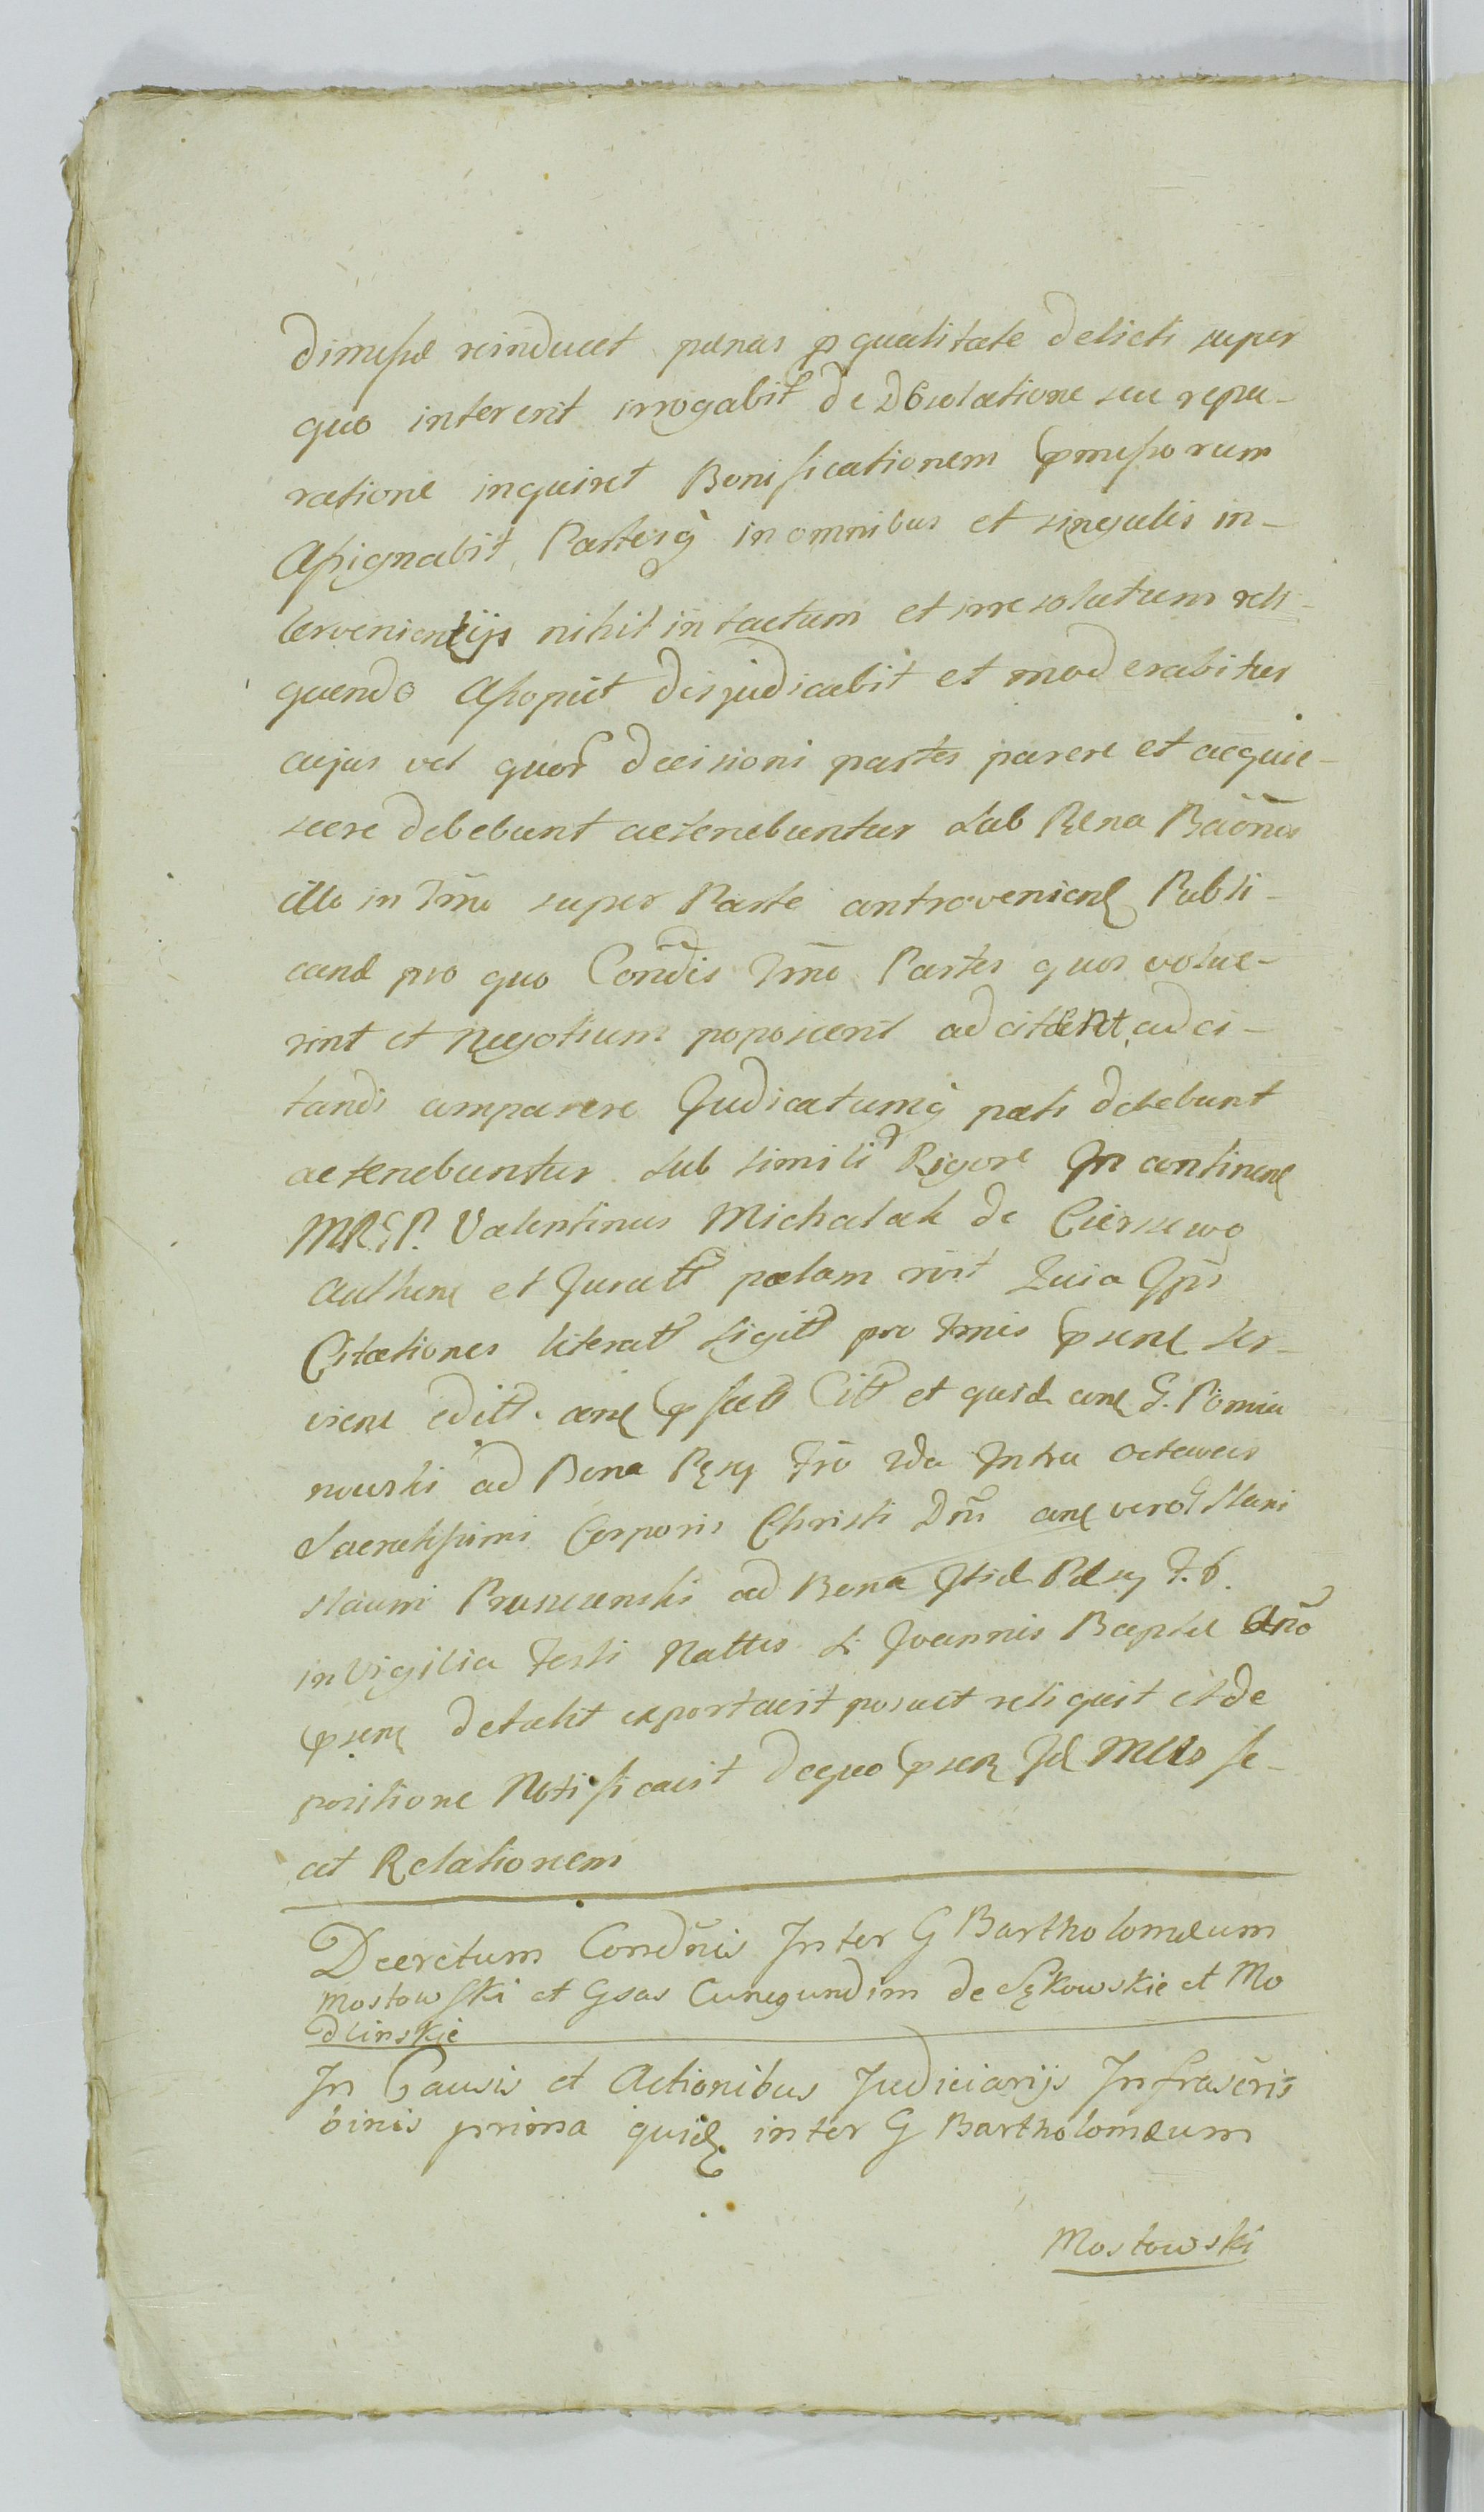 dimissae reinducet paenas p qualitate delicti super
quo intererit irrogabit de Desolatione seu repa-
ratione inquiret Bonificationem praemissorum
Assignabit, Partesq in omnibus et singulis in-
tervenientijs nihil intactum et irresolutum reli-
quendo Assopiet disjudicabit et moderabitur
cujus vel quor decisioni partes parere et acquie-
scere debebunt ac tenebuntur Sub Paena Bãõnis
illo in Tm̃o super Parte contravenien Publi-
cand pro quo Cond̃is Tm̃o Partes quos volue-
rint et Negotium poposcerit adcitent, adci-
tandi comparere Judicatumq pati debebunt
ac tenebuntur Sub simili Rigore In continen
MREP. Valentinus Michalak de Ciersewo
Authen et Juratt palam rĩt Quia Ipse
Citationes literatt Sigitt pro Tmis praesen ser-
vien editt. con praefatt Citt et quid con G. Pomia
nowski ad Bona Fr̃o 2da Intra octavas
Sacratissimi Corporis Christi Dñi con vero G Stani
slaum Pruszenski ad Bona Ibid F. 6.
in Vigilia Festi Nattis S. Joannis Baptae Añõ
praesen detulit exportavit posuit reliquit et de
positione Notificavit dequo praesen Id Mttis fe-
cit Relationem
Decretum Condñis Inter G Bartholomaeum
Mostowski et Gsas Cunegundim de Sękowskie et Mo
dlinskie
In Causis et Actionibus Judiciarijs Infrascr̃is
binis prima quid inter G Bartholomaeum
Mostowski